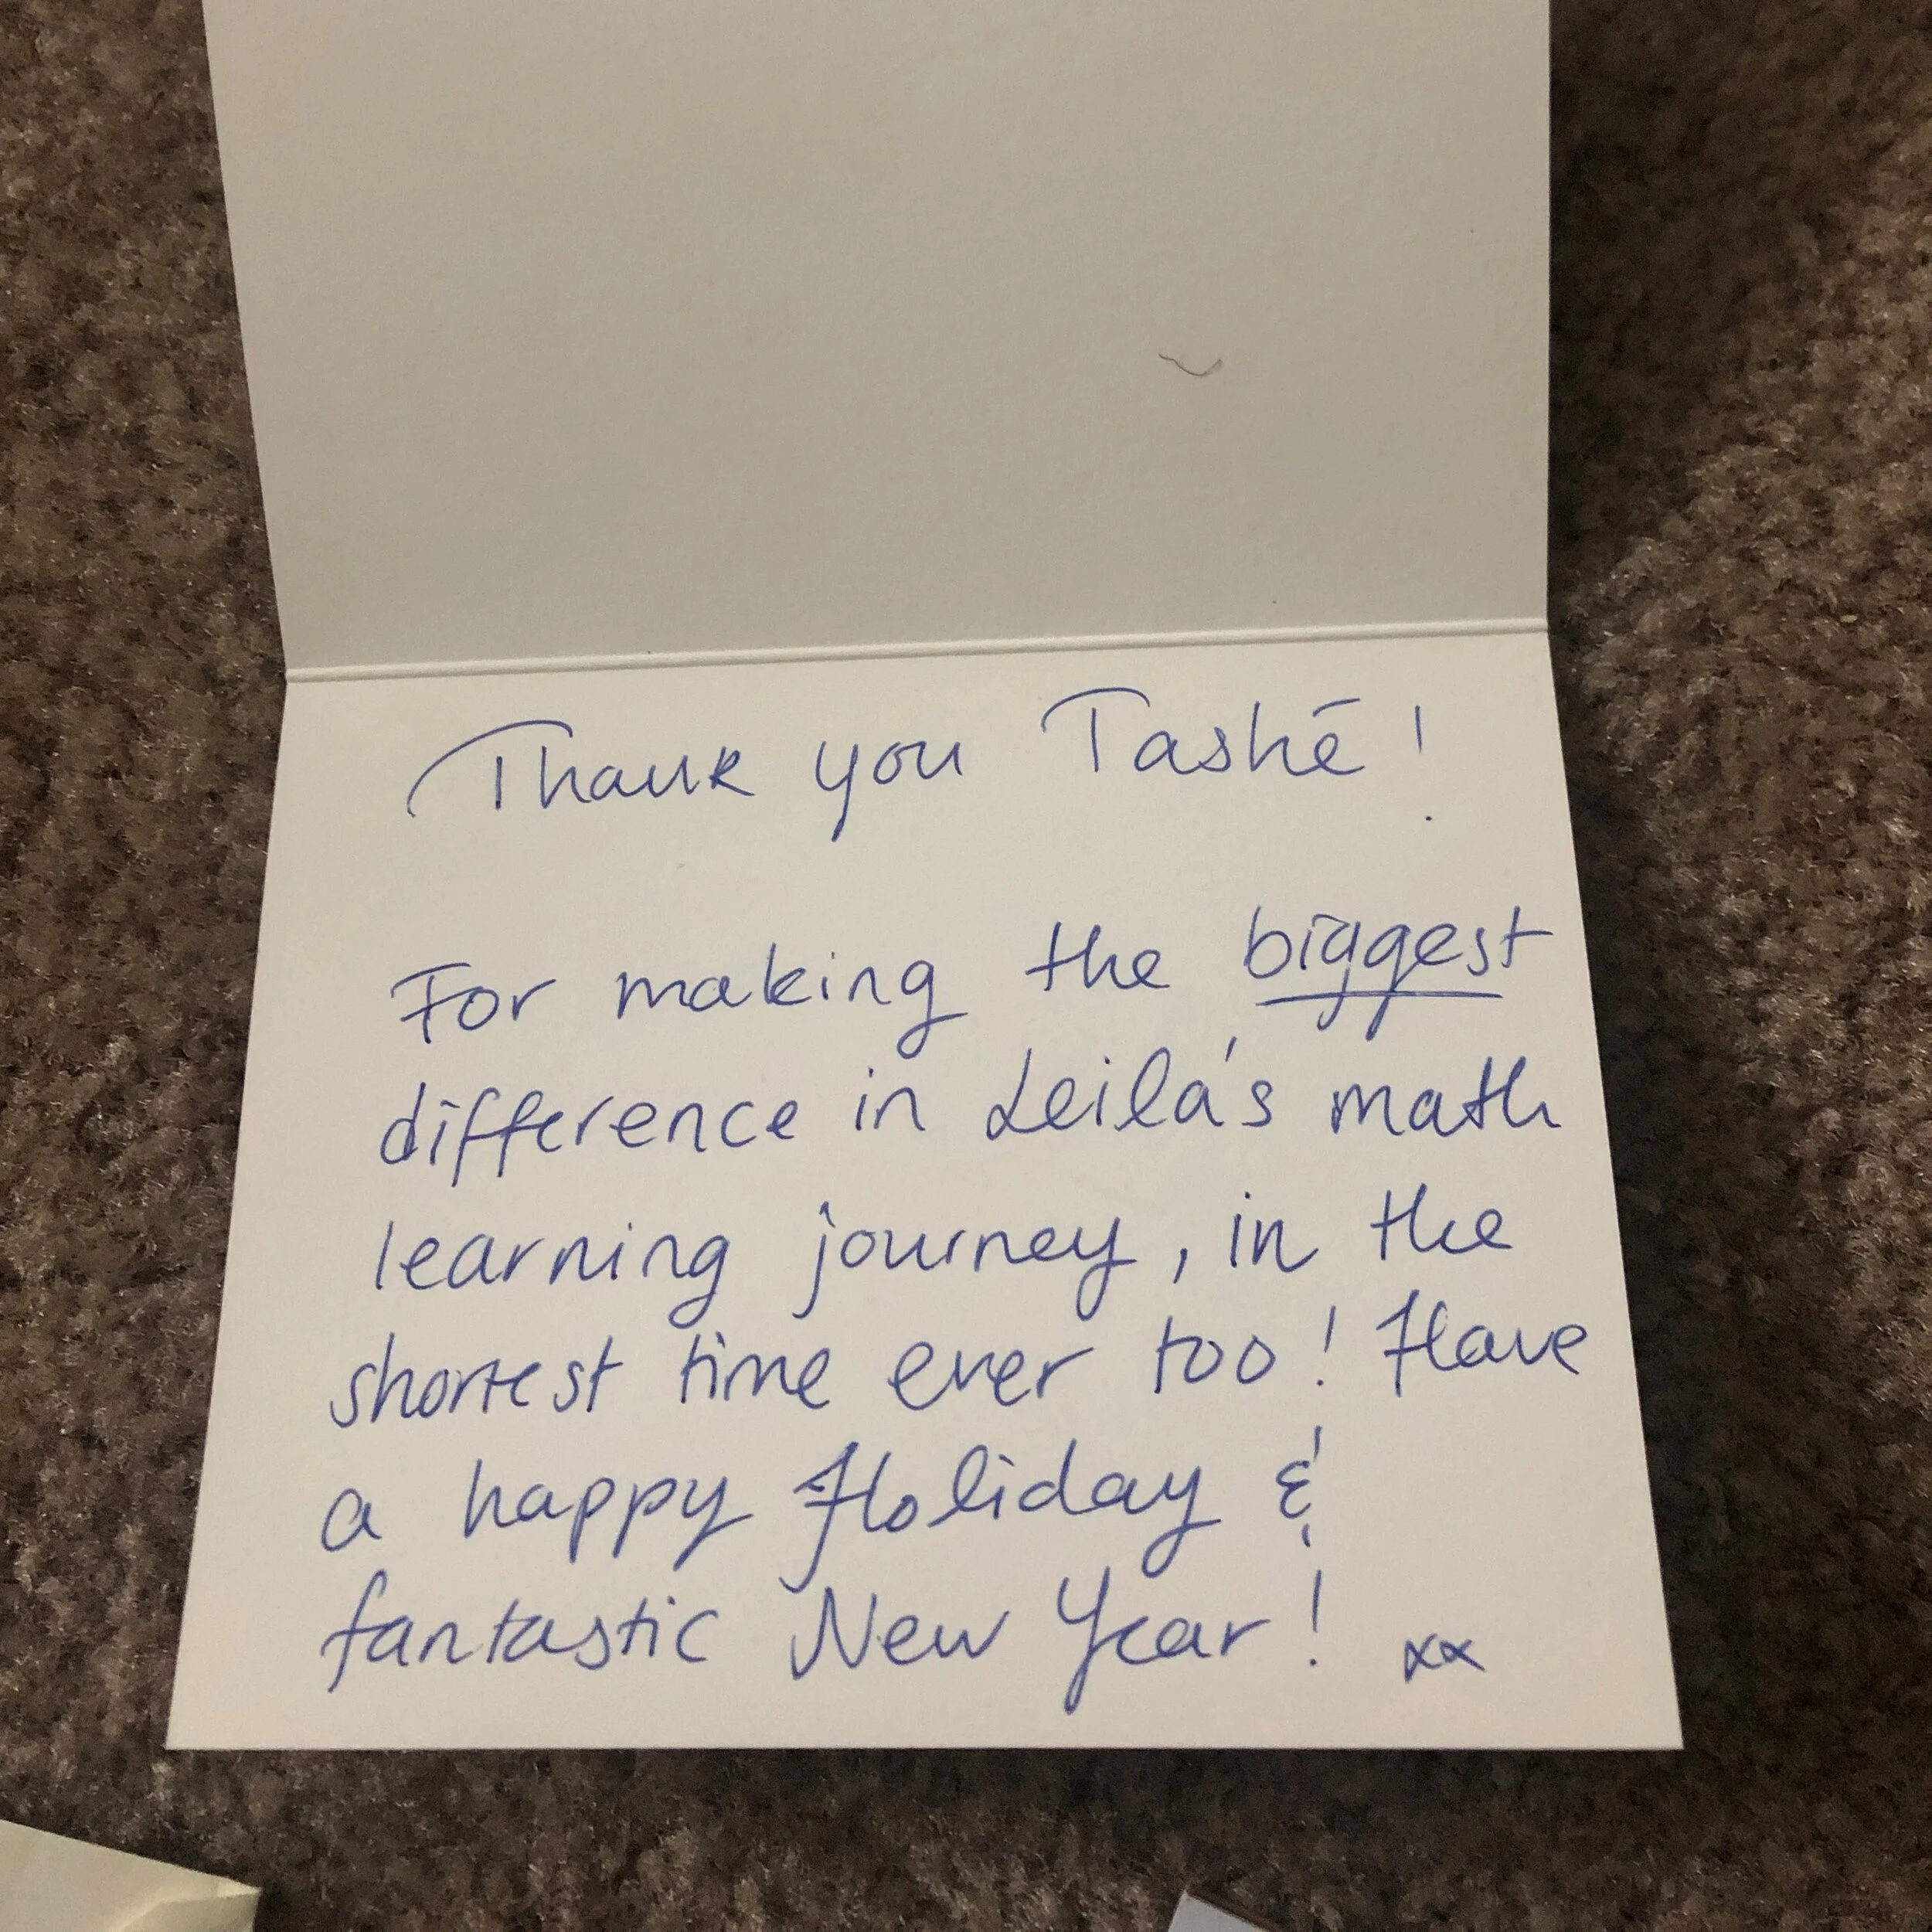 Thank you Tashé!
For making the biggest
difference in Leila's math
learning journey, in the
shortest time ever too! Have
a happy Holiday &
fantastic New Year! xx